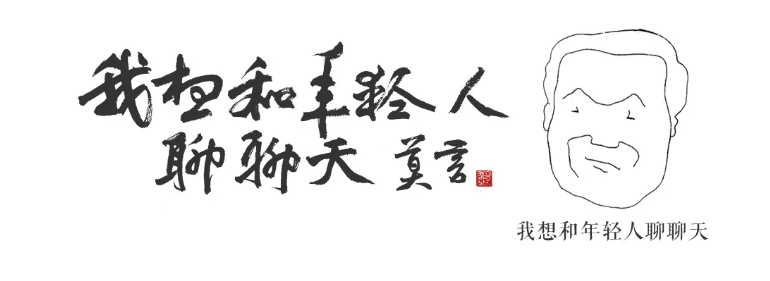 我想和年轻人
聊聊天 莫言
我想和年轻人聊聊天